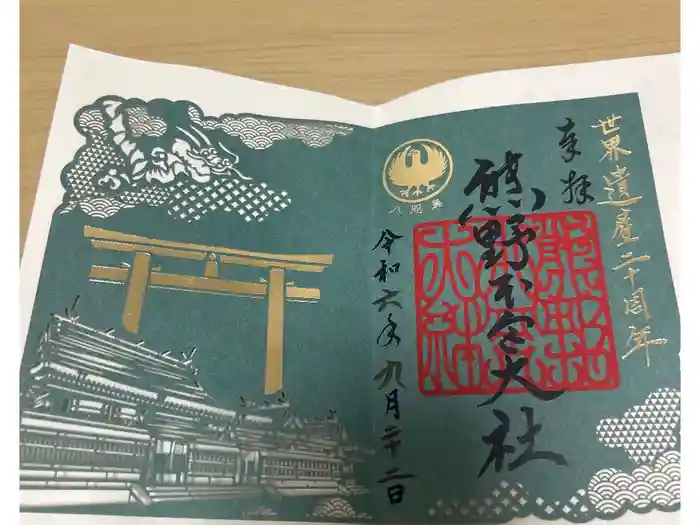 世界遺産二十周年
奉拝
熊野本宮大社
八咫烏
令和六年九月二十二日